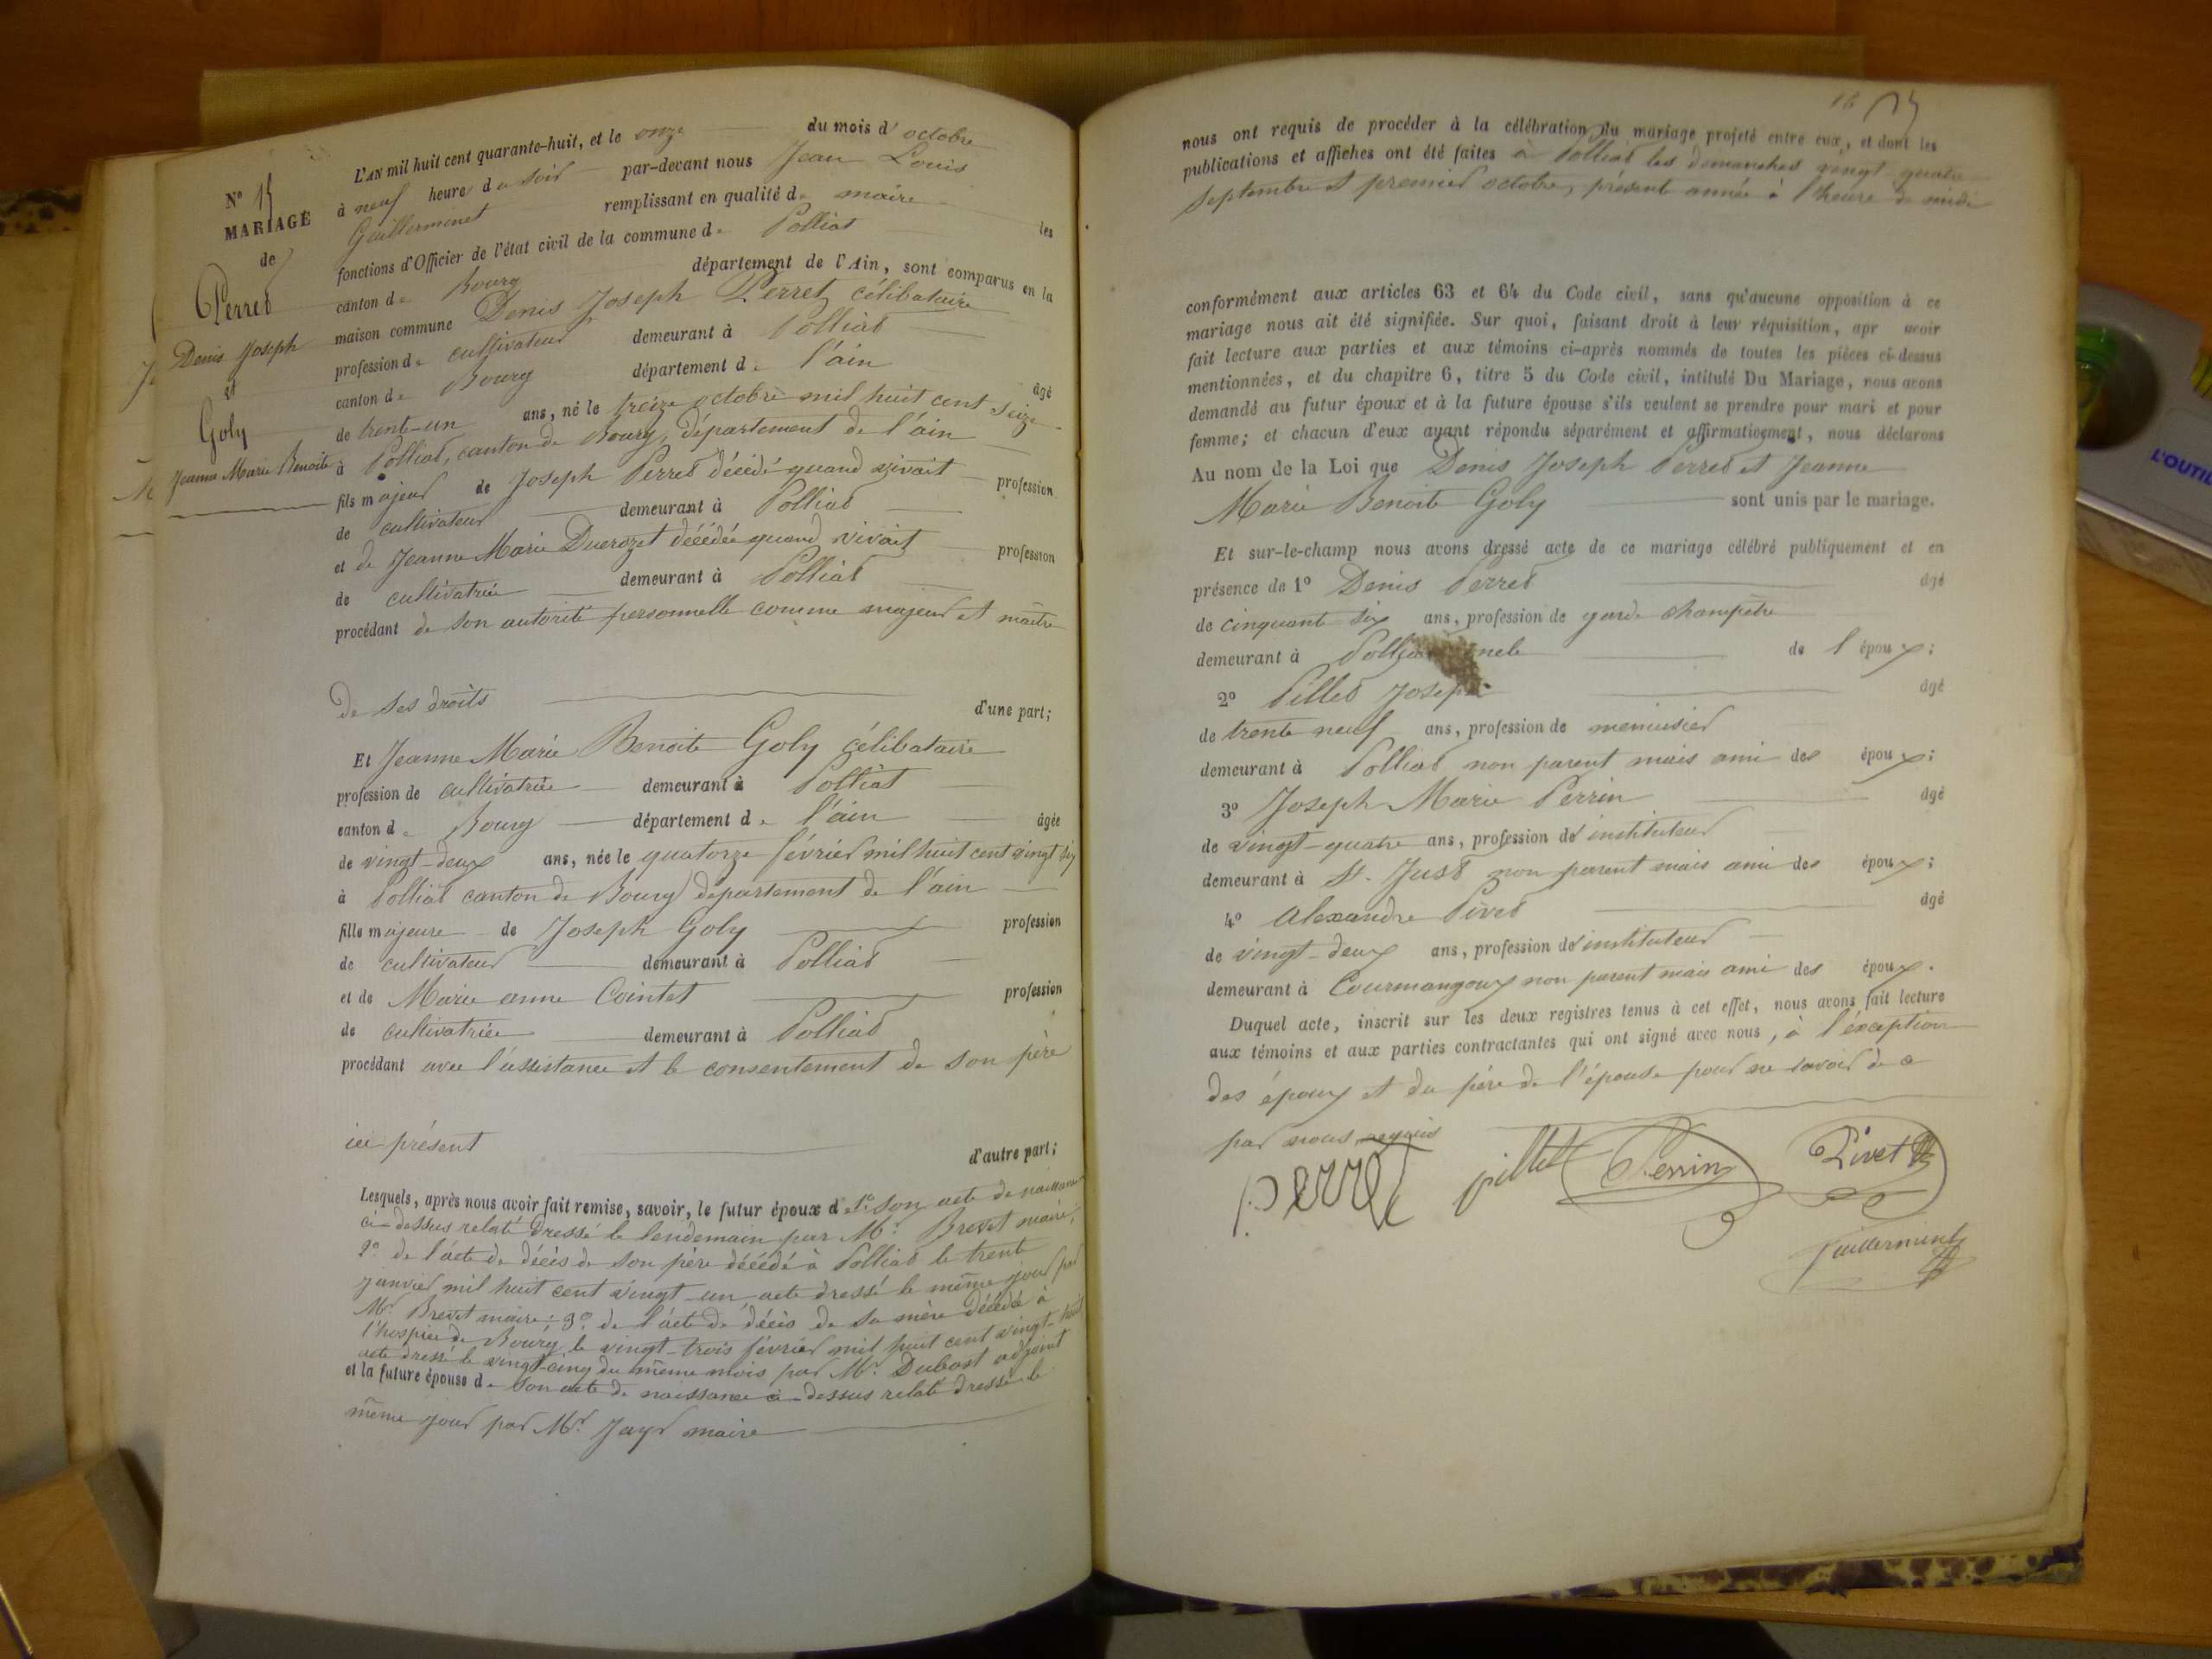 N° 15
MARIAGE
de
Perret
Denis Joseph
et
Goly
Jeanne Marie Benoite
L'AN mil huit cent quarante-huit, et le onze du mois d'octobre
à neuf heures du soir par-devant nous Jean Louis
Guillerminet remplissant en qualité de maire les
fonctions d'Officier de l'état civil de la commune de Polliat
canton de Bourg département de l'Ain, sont comparus en la
maison commune Denis Joseph Perret, célibataire
profession de cultivateur demeurant à Polliat
canton de Bourg département de l'ain âgé
de trente-un ans, né le treize octobre mil huit cent seize
à Polliat, canton de Bourg, département de l'ain
fils majeur de Joseph Perret décédé quand vivait profession
de cultivateur demeurant à Polliat
et de Jeanne Marie Ducrozet décédée quand vivait profession
de cultivatrice demeurant à Polliat
procédant de son autorité personnelle comme majeur et maître
de ses droits d'une part;
Et Jeanne Marie Benoite Goly célibataire
profession de cultivatrice demeurant à Polliat
canton de Bourg département de l'ain âgée
de vingt-deux ans, née le quatorze février mil huit cent vingt six
à Polliat canton de Bourg département de l'ain
fille majeure de Joseph Goly profession
de cultivateur demeurant à Polliat
et de Marie anne Cointet profession
de cultivatrice demeurant à Polliat
procédant avec l'assistance et le consentement de son père
ici présent d'autre part;
Lesquels, après nous avoir fait remise, savoir, le futur époux de 1° son acte de naissance
ci-dessus relaté dressé le lendemain par Mr. Brevet maire;
2° de l'acte de décès de son père décédé à Polliat le trente
janvier mil huit cent vingt-un acte dressé le même jour par
Mr. Brevet maire; 3° de l'acte de décès de sa mère décédée à
l'hospice de Bourg le vingt-trois février mil huit cent vingt-huit
acte dressé le vingt-cinq du même mois par Mr. Dubost adjoint
et la future épouse de son acte de naissance ci-dessus relaté dressé le
même jour par Mr. Jayr maire
nous ont requis de procéder à la célébration du mariage projeté entre eux, et dont les
publications et affiches ont été faites à Polliat les demanches vingt quatre
septembre et premier octobre, présent année à l'heure de midi
conformément aux articles 63 et 64 du Code civil, sans qu'aucune opposition à ce
mariage nous ait été signifiée. Sur quoi, faisant droit à leur réquisition, apr avoir
fait lecture aux parties et aux témoins ci-après nommés de toutes les pièces ci-dessus
mentionnées, et du chapitre 6, titre 5 du Code civil, intitulé Du Mariage, nous avons
demandé au futur époux et à la future épouse s'ils veulent se prendre pour mari et pour
femme; et chacun d'eux ayant répondu séparément et affirmativement, nous déclarons
Au nom de la Loi que Denis Joseph Perret et Jeanne
Marie Benoite Goly sont unis par le mariage.
Et sur-le-champ nous avons dressé acte de ce mariage célébré publiquement et en
présence de 1° Denis Perret âgé
de cinquante six ans, profession de garde champêtre
demeurant à Polliat de l'époux;
2° Pillet Joseph âgé
de trente neuf ans, profession de menuisier
demeurant à Polliat non parent mais ami des époux;
3° Joseph Marie Perrin âgé
de vingt-quatre ans, profession d'instituteur
demeurant à St. Just non parent mais ami des époux;
4° Alexandre Pivet âgé
de vingt-deux ans, profession d'instituteur
demeurant à Courmangoux non parent mais ami des époux.
Duquel acte, inscrit sur les deux registres tenus à cet effet, nous avons fait lecture
aux témoins et aux parties contractantes qui ont signé avec nous, à l'exception
des époux et du père de l'épouse pour ne savoir de ce
par nous requis
perret pillet Perrin Pivet
Guillerminet
L'OUTIL